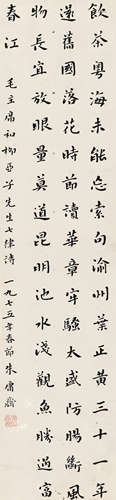 飲茶粵海未能忘索句渝州葉正黃三十一年
還舊國落花時節讀華章牢騷太盛防腸斷風
物長宜放眼量莫道昆明池水淺觀魚勝過富
春江 毛主席和柳亞子先生七律詩 一九七五年春節朱庸齋